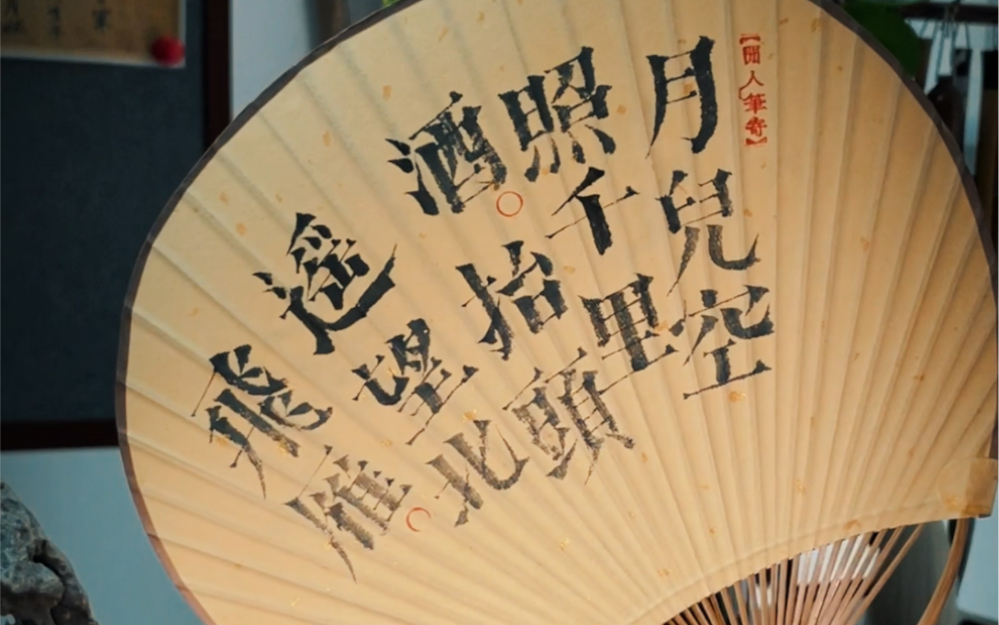 【閒人筆寄】
月兒空
照千里
酒。抬頭
遙望北
飛雁。